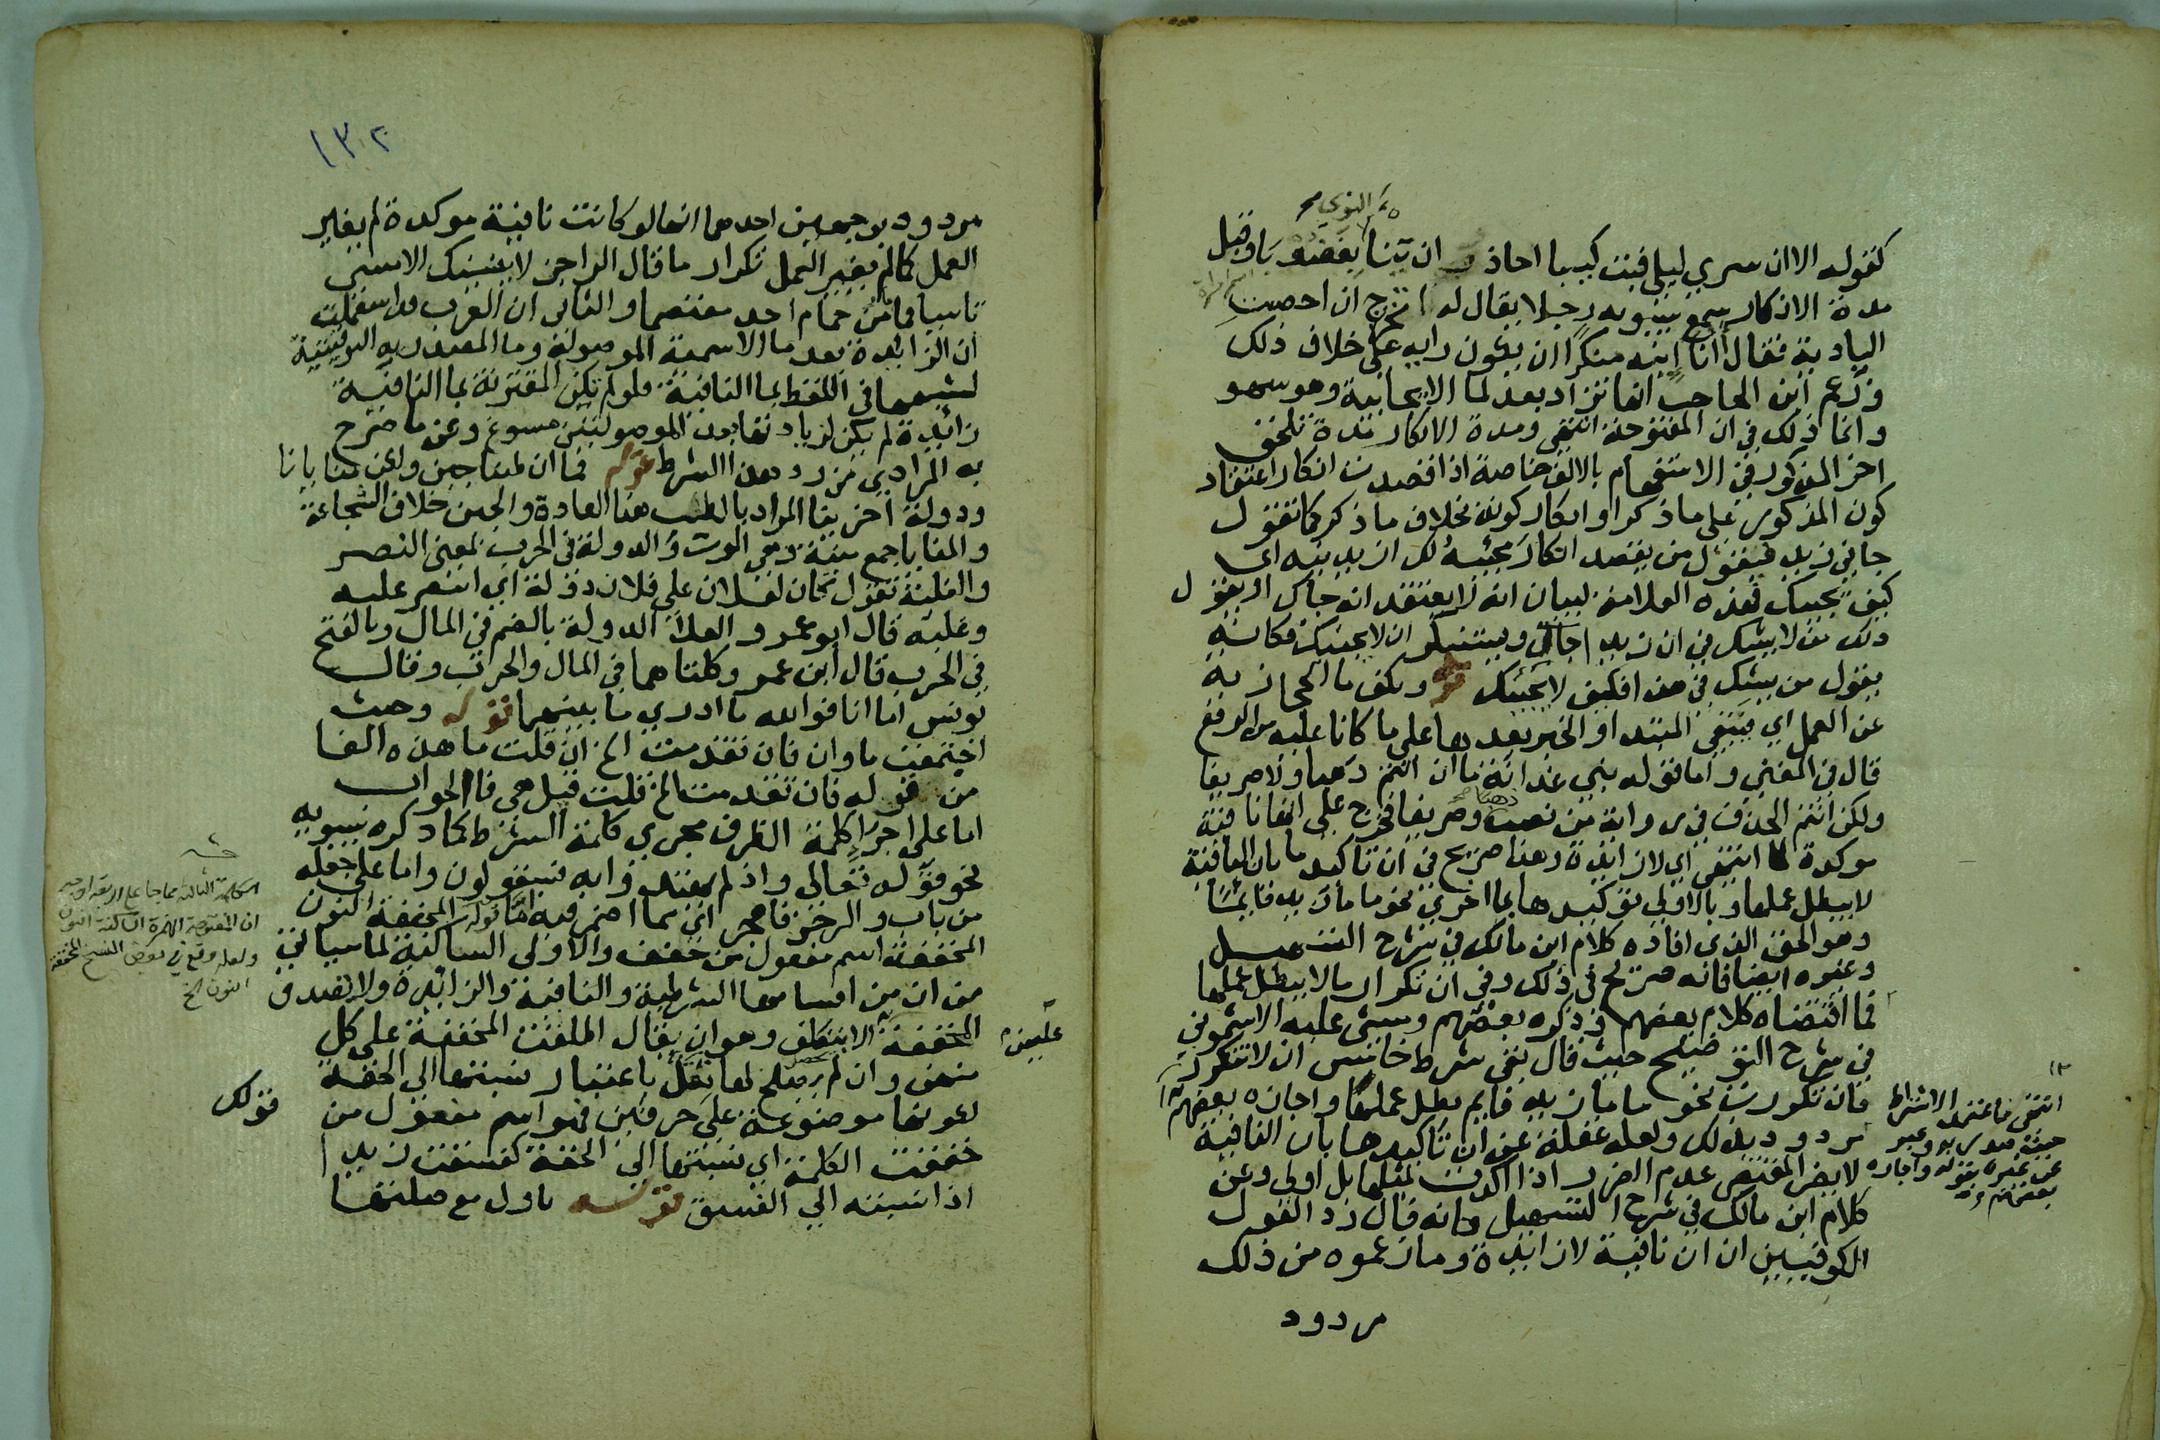 كقوله الا ان سرى ليلى فبت كيبا احاذر ان تنا بغضوبا وقبل
النوي صح
مدة الانكار سمع سيبويه رجلا يقال له اتخرج ان اخصبت
البادية فقال أأنا إنيه منكرا ان يكون رايه على خلاف ذلك
وزعم ابن الحاجب انها تزاد بعد لما الايجابية وهو سهو
وانما ذلك في ان المفتوحة انتهى ومدة الانكار مدة تلحق
اخر المذكور في الاستفهام بالالف خاصة اذا قصدت انكار اعتقاد
كون المذكور على ما ذكر او انكار كونه بخلاف ما ذكر كما تقول
جاني زيد فيقول من يقصد انكار مجيئه لك ازيدنيه اي
كيف يجيك فهذه العلامة لبيان انه لا يعتقد انه جاك او يقول
ذلك من لا يشك في ان زيدا جاك ويستنكر ان لا يجيئك فكانه
يقول من يشك في هذا فكيف لا يجيئك قوله وتكف ما الحجازية
عن العمل اي فيبقى المبتدا والخبر بعدها على ما كانا عليه من الرفع
قال في المغني واما قوله بني غدانة ما ان انتم ذهبا ولا صريفا
ولكن انتم الخذف في رواية من نصب ذهبا وصريفا فخرج على انها نافية
موكدة لما انتهى اي لا زائدة وهذا صريح في ان تاكيد ما بان النافية
لا يبطل عملها وبالاولى توكيدها بما اخرى نحو ما ما زيد قائما
وهو الحق الذي افاده كلام ابن مالك في شرح التسهيل
وغيره ايضا فانه صريح في ذلك وفي ان تكرار ما لا يبطل عملها
فما اقتضاه كلام بعضهم وذكره بعضهم ومشى عليه الاشموني
في شرح التوضيح حيث قال بقي شرط خامس ان لا تتكرر
فان تكررت نحو ما ما زيد قايم بطل عملها واجازه بعضهم
مردود بذلك ولعله غفلة عن ان تاكيدها بان النافية
لا يضر المقتضي عدم الضرر اذا اكدت بمثلها بل اولى وعن
كلام ابن مالك في شرح التسهيل فانه قال رد القول
الكوفيين ان ان نافية لا زائدة وما زعموه من ذلك
مردود
انتهى فاعتمد الاشتراط
عن غيره بقوله واجازه
بعضهم
١٣٢
مردود بوجهين احدهما انها لو كانت نافية موكدة لم يغير
العمل كما لم يغير العمل تكرار ما قال الراجز لا ينسك الاسى
تاسيا فما ما من حمام احد معتصما والثاني ان العرب قد استعملت
ان الزائدة بعد ما الاسمية الموصولة وما المصدرية التوقيتية
لشبهها في اللفظ بما النافية فلو لم تكن المقترنة بما النافية
زائدة لم يكن لزيادتها بعد الموصولتين مسوغ وعن ما صرح
به المرادي من رد هذا الشرط قوله فما ان طبنا جبن ولكن منايانا
ودولة اخرينا المراد بالطب هنا العادة والجبن خلاف الشجاعة
والمنايا جمع منية وهي الموت والدولة في الحرب بمعنى النصر
والغلبة تقول كان لفلان على فلان دولة اي انتصر عليه
وغلبه قال ابو عمرو العلا الدولة بالضم في المال وبالفتح
في الحرب قال ابن عمر وكلتاهما في المال والحرب وقال
يونس اما انا فوالله ما ادري ما بينهما قوله وحيث
اجتمعت ما وان فان تقدمت الخ ان قلت ما هذه الفا
من قوله فان تقدمت الخ قلت قيل هي فا الجواب
اما على اجرا كلمة الظرف مجرى كلمة الشرط كما ذكره سيبويه
نحو قوله تعالى واذ لم يهتدوا به فسيقولون واما على جعله
من باب والرجز فاهجر اي مما اضمر فيه اما قوله المخففة النون
المخففة اسم مفعول من خفف والاولى الساكنة لما سياتي
من ان من اقسامها الشرطية والنافية والزائدة ولا يصدق
المخففة الا بتكلف وهو ان يقال اطلقت المخففة على كل
منهن وان لم يصلح لها ثقل باعتبار نسبتها الى الخفة
لكونها موضوعة على حرفين فهو اسم مفعول من
خففت الكلمة اي نسبتها الى الخفة كفسقت زيدا
اذا نسبته الى الفسق قوله باول مع صلتها
عليهن
ان المفتوحة الهمزة الساكنة النون
ولعله وقع في بعض النسخ المخففة
النون الخ
قولك